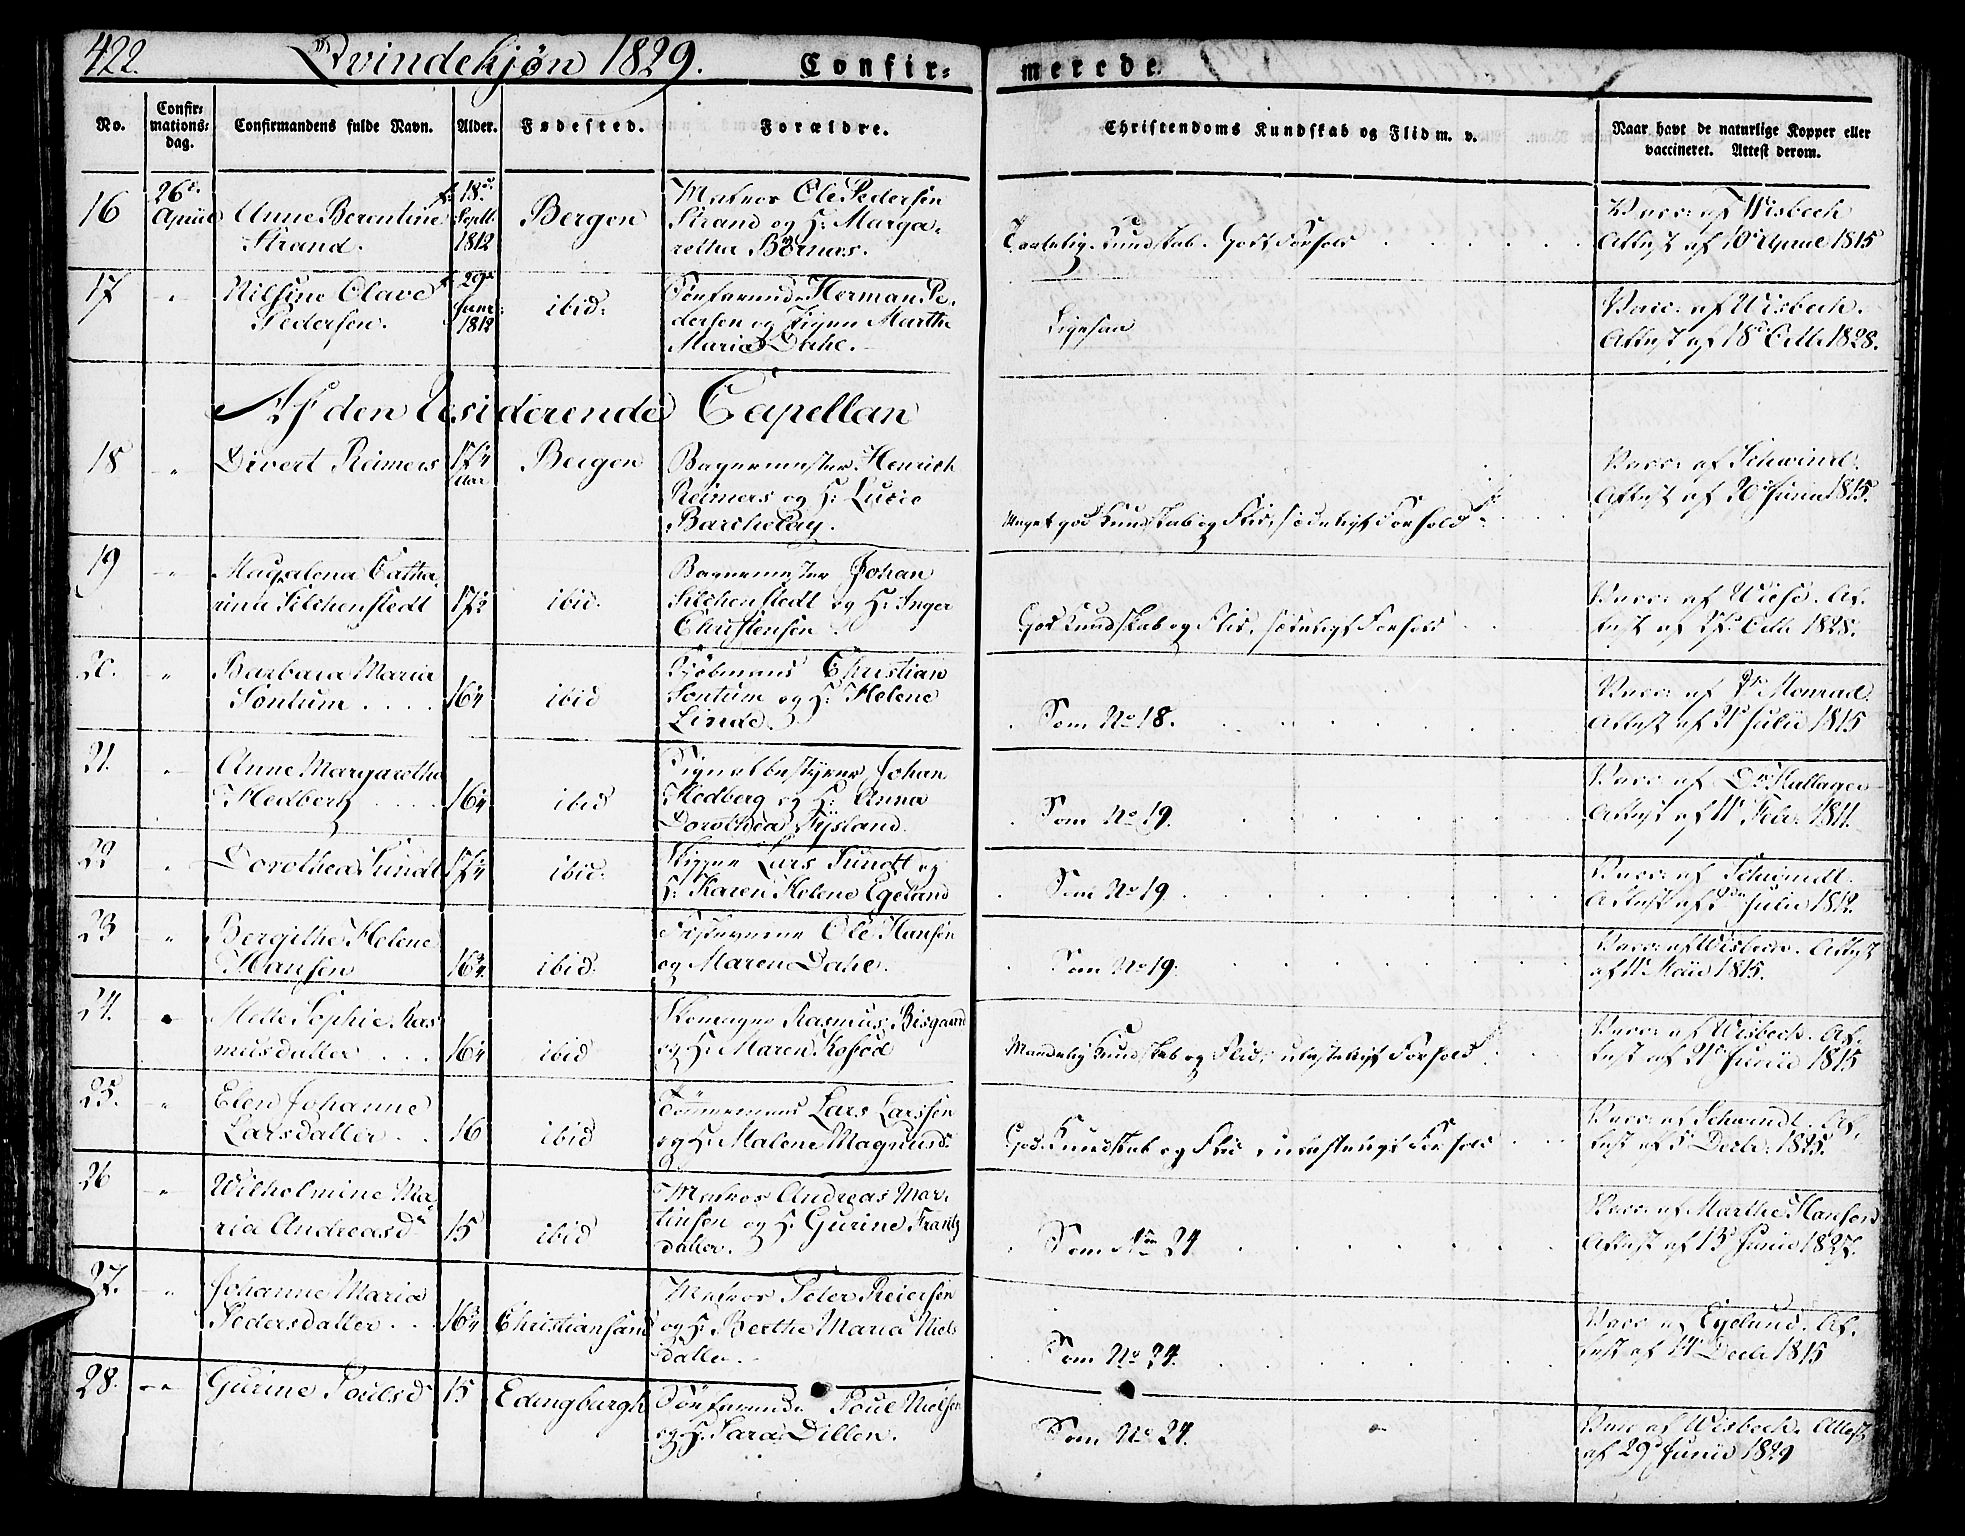 422.
Qvindekjøn 1829.
Confir=
merede.
No.
Confir=
mations=
dag.
Confirmandens fulde Navn.
Alder.
Fødested.
Forældre.
Christendoms Kundskab og Flid m. v.
Naar havt de naturlige Kopper eller
vaccineret. Attest derom.
16
26de
April
Anne Berentine
Strand.
f. 18de
Septb.
1812
Bergen
Matros Ole Pedersen
Strand og H: Marga-
retha Börnæs.
Taalelig Kundskab. Godt Forhold
Vacc: af Wisbech
Attest af 10de April 1815
17
Nilsine Olave
Pedersen.
f. 29de
Juni
1812
ibid.
Söefarende Herman Pe-
dersen og Pigen Marthe
Maria Dahe.
Ligesaa
Vacc: af Wisbech.
Attest af 18de Octb. 1828.
Af den residerende Capellan
18
Divert Reimers
17¼
Aar
Bergen
Bagermester Henrich
Reimers og H: Lucie
Bartholdy.
Meget god Kundskab og Flid, sædeligt Forhold
Vacc: af Schwindt.
Attest af 20de Junii 1815.
19
Magdalena Catha-
rina Silchenstedt
17½
ibid.
Bagermester Johan
Silchenstedt og H: Inger
Christensen.
God Kundskab og Flid, sædeligt Forhold
Vacc: af Wiese. At-
test af 27de Octb. 1828.
20.
Barbara Maria
Sontum
16¼
ibid
Kjöbmand Christian
Sontum og H: Helene
Linde.
Som No 18.
Vacc: af Dr Monrad
Attest af 21de Julii 1815
21.
Anne Margarethe
Hedberg
16¼
ibid
Signalbestyrer Johan
Hedberg og H: Anna
Dorothea Fysland.
Som No 19.
Vacc: af Dr
Attest af 11te Febr. 1811.
22
Dorothea Sundt
17¼
ibid.
Skipper Lars Sundt og
H: Karen Helene Egeland
Som No 19.
Vacc: af Schwindt.
Attest af Julii 1812.
23
Bergithe Helene
Hansen
16¾
ibid.
Ole Hansen
og Maren Dahe.
Som No 19.
Vacc: af Wisbech. Attest
af 11te Maii 1815.
24.
Mette Sophie Ras
musdatter
16¼
ibid
Skomager Rasmus Bisgaard
og H: Maren Kofoed
Maadelig Kundskab og Flid, ulasteligt Forhold
Vacc: af Wisbech. At-
test af 21de Junii 1815
25.
Elen Johanne
Larsdatter
16
ibid
Tömmermand Lars Larssen
og H: Malene Magnusd.
God Kundskab og Flid, ulasteligt Forhold
Vacc: af Schwindt. At-
test af 5 Decbr: 1825.
26
Wilhelmine Ma
ria Andreasd.
15
ibid
Matros Andreas Mar-
tinsen og H: Gurine Frantz
datter.
Som No 24
Vacc: af Marthe Hansen
Attest af 13de Junii 1827.
27.
Johanne Maria
Pedersdatter
16¾
Christiansand
Matros Peter Reiersen
og H: Berthe Maria Niels
datter.
Som No 24.
Vacc af Egelund. At-
test af 14de Decbr 1815
28.
Gurine Poulsd
15
Edingburgh
Söefarende Poul Nielsen
og H: Sara Dillen.
Som No 24.
Vacc af Wisbech. Attest
af 29de Junii 1829